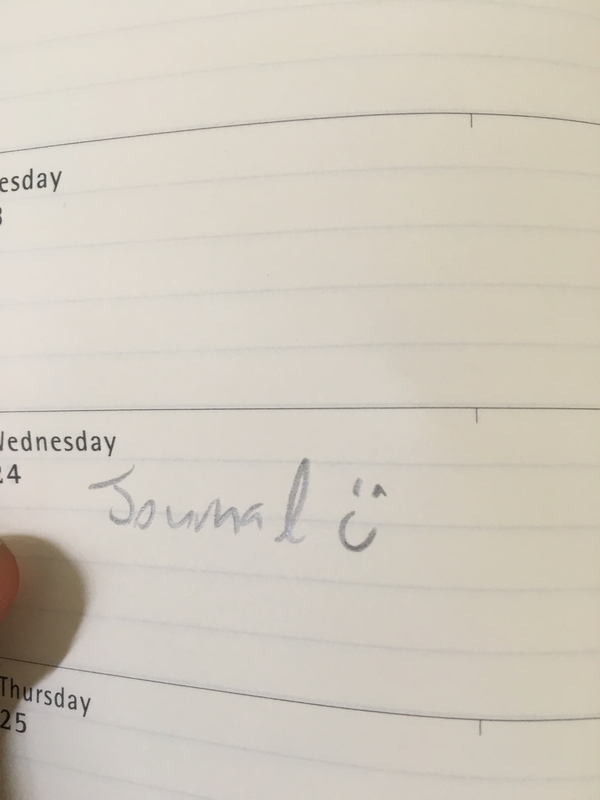 esday
3
Wednesday
24
Journal
Thursday
25